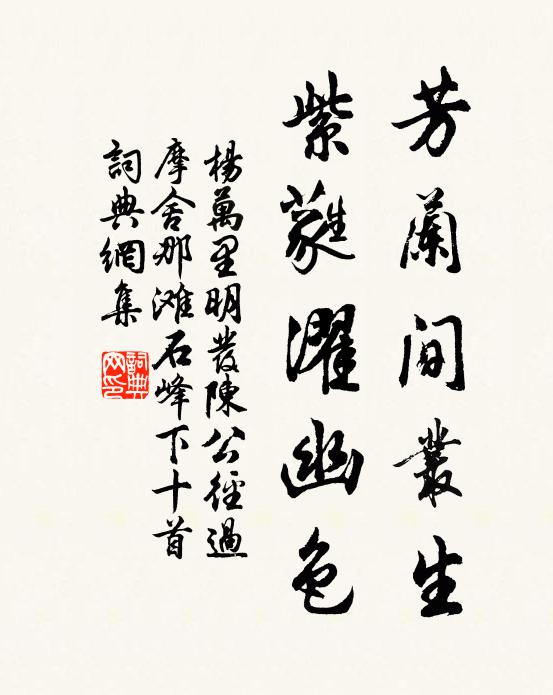 芳蘭間叢生
紫蕤濯幽色
楊萬里明發陳公徑過
摩舍那滩石峰下十首
詞典網集
詞典
网印